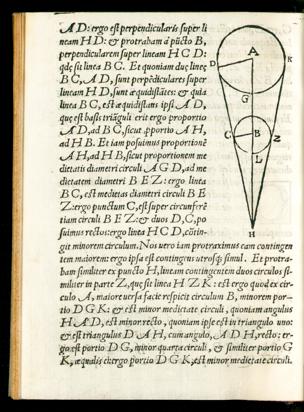 A D: ergo est perpendicularis super li
neam H D: & protraham à pūcto B,
perpendicularem super lineam H C D:
qdē sit linea B C. Et quoniam duę lineę
B C, A D, sunt perpēdiculares super
lineam H D, sunt æquidistātes: & quia
linea B C, est æquidistans ipsi A D,
quę est basis triāguli erit ergo proportio
A D, ad B C, sicut proportio A H,
ad H B. Et iam posuimus proportionē
A H, ad H B, sicut proportionem me
dietatis diametri circuli A G D, ad me
dietatem diametri B E Z: ergo linea
B C, est medietas diametri circuli B E
Z: ergo punctum C, est super circunferē
tiam circuli B E Z: & duos D, C, po
suimus rectos: ergo linea H C D, cōtin-
git minorem circulum. Nos uero iam protraximus eam contingen
tem maiorem: ergo ipsa est contingens utrosq; simul. Et protra-
bam similiter ex puncto H, lineam contingentem duos circulos si-
militer in parte Z, quę sit linea H Z K: est ergo quod ex cir-
culo A, maiore uersa facie respicit circulum B, minorem por-
tio D G K: & est minor medietate circuli, quoniam angulus
H A D, est minor recto, quoniam ipse est in triangulo uno:
& est triangulus D A H, cum angulo, A D H, recto: er-
go est portio D G, minor quarta circuli, & similiter portio G
K, æqualis ei: ergo portio D G K, est minor medietate circuli.
A
D
K
G
C
B
Z
L
H